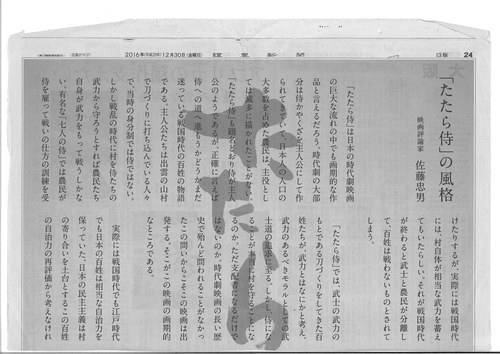 24
13版
讀賣新聞
2016年(平成28年)12月30日(金曜日)
「たたら侍」の風格
映画評論家 佐藤忠男
「たたら侍」は日本の時代劇映画
の巨大な流れの中でも画期的な作
品と言えるだろう。時代劇の大部
分は侍かやくざを主人公にして作
られてきていて、日本人の人口の
大多数を占めた農民は、主役とし
ては滅多に描かれたことがない。
「たたら侍」も題名どおり侍が主人
公のようであるが、正確に言えば
侍への道へ進もうかどうかまだ
迷っている戦国時代の百姓の物語
である。主人公たちは出雲の山村
で刀づくりに打ち込んでいる人々
で、当時の身分制では侍ではない。
しかし戦乱の時代に村を侍たちの
武力から守ろうとすれば農民たち
自身が武力をもって戦うしかな
い。有名な「七人の侍」では農民が
侍を雇って戦いの仕方の訓練を受
けたりするが、実際には戦国時代
には、村自体が相当な武力を蓄え
てもいたらしい。それが戦国時代
が終わると武士と農民が分離し
て、百姓は戦わないものとされて
しまう。
「たたら侍」では、武士の武力の
もとである刀づくりをしてきた百
姓たちが、武力とはなにかと考え、
武力のあるべきモラルとしての武
士道の追求に至る。しかし、侍にな
ることが本当に村を守ることにな
るのか、ただ支配者になるだけで
はないのか。時代劇映画の長い歴
史で殆んど問われることがなかっ
たこの問いからこそこの映画は出
発する。そこがこの映画の画期的
なところである。
実際には戦国時代でも江戸時代
でも日本の百姓は相当な自治力を
保っていた。日本の民主主義は村
の寄り合いを土台とするこの百姓
の自治力の再評価から考えなけれ